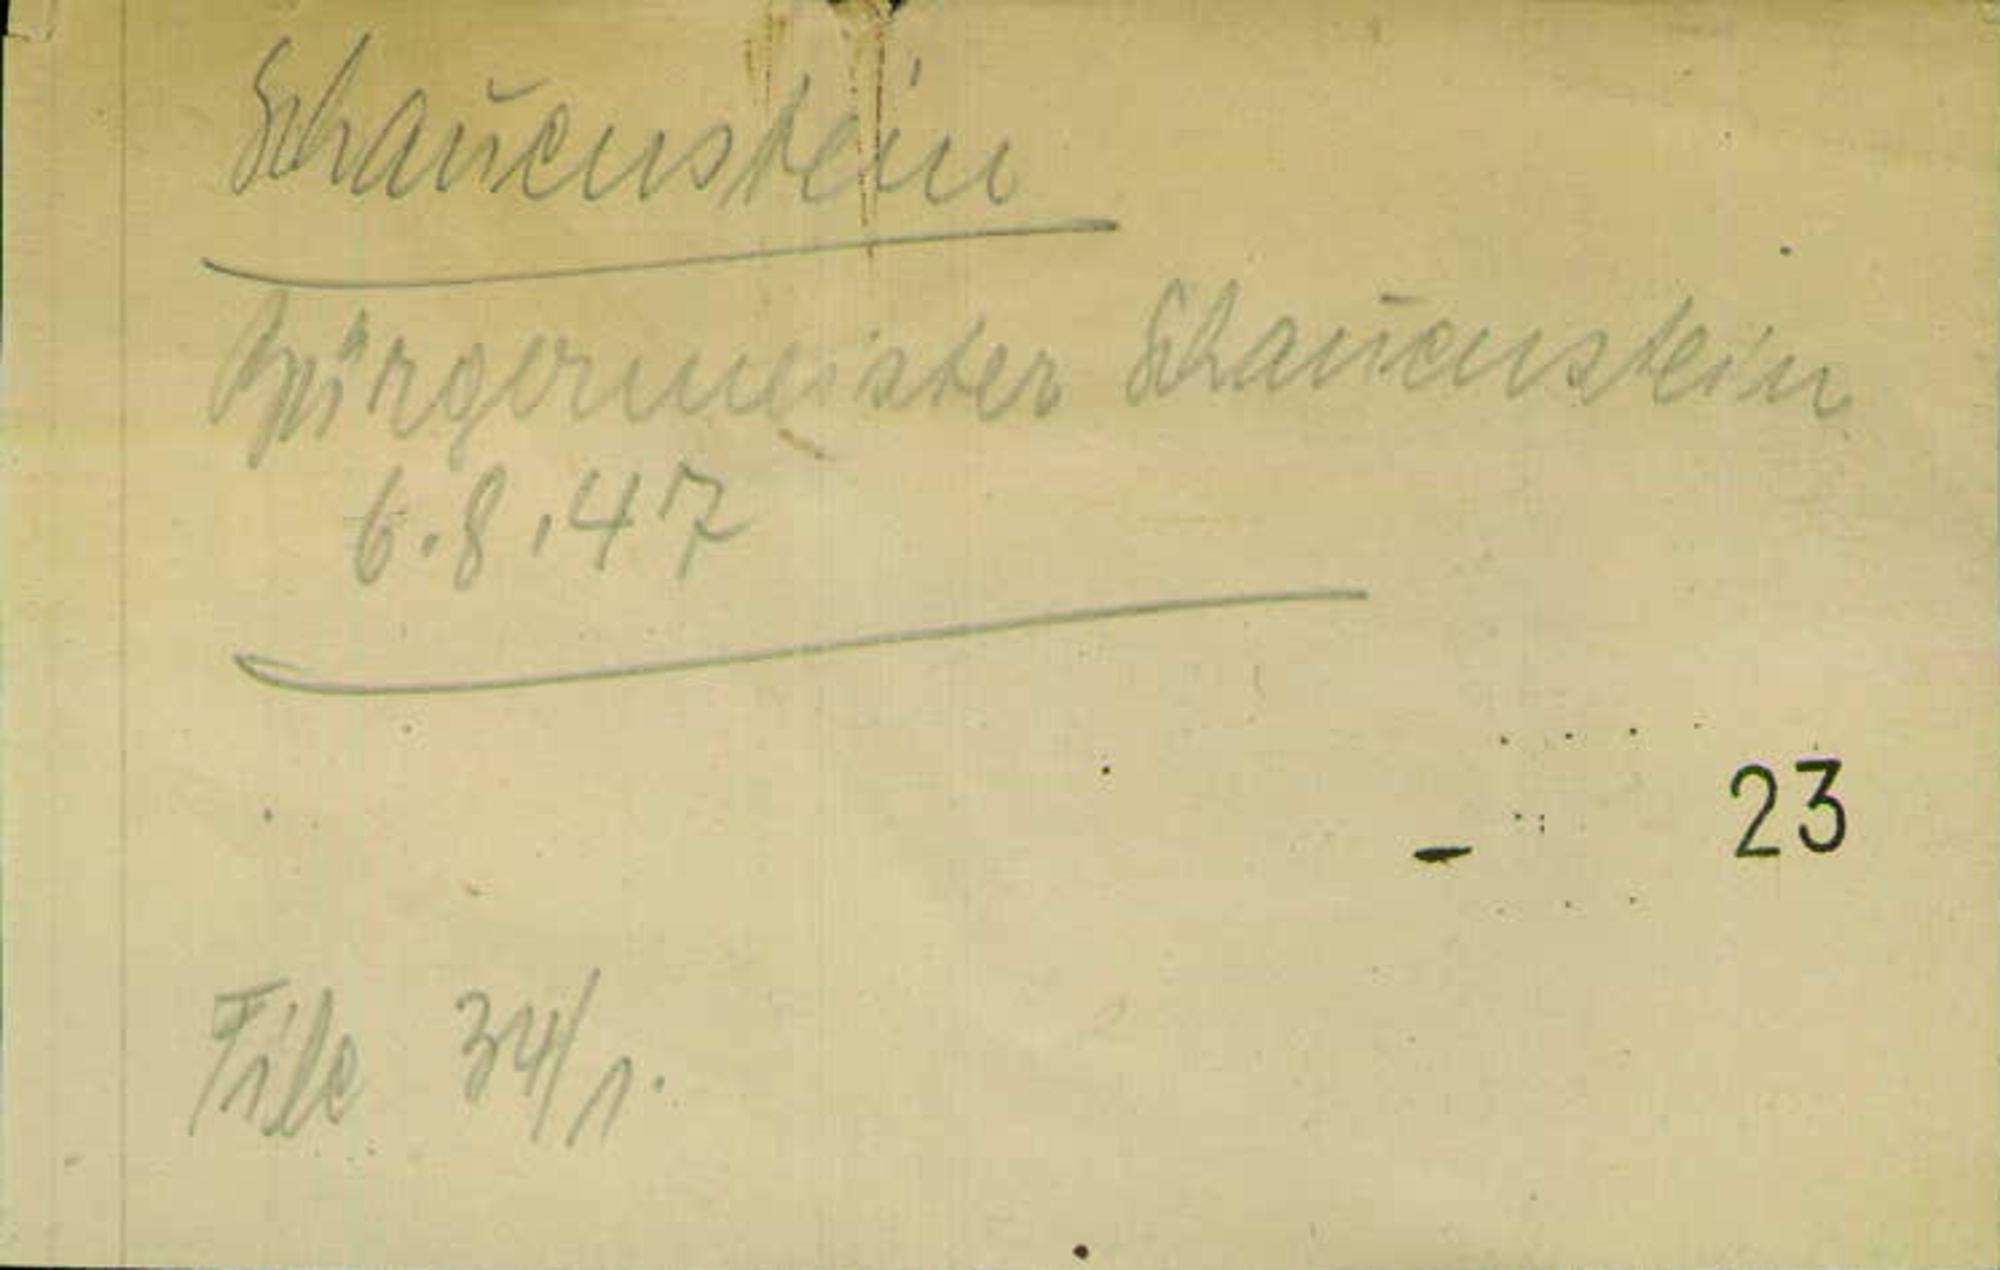 Schauenstein
Bürgermeister Schauenstein
6.8.47
- 23
File 34/1.